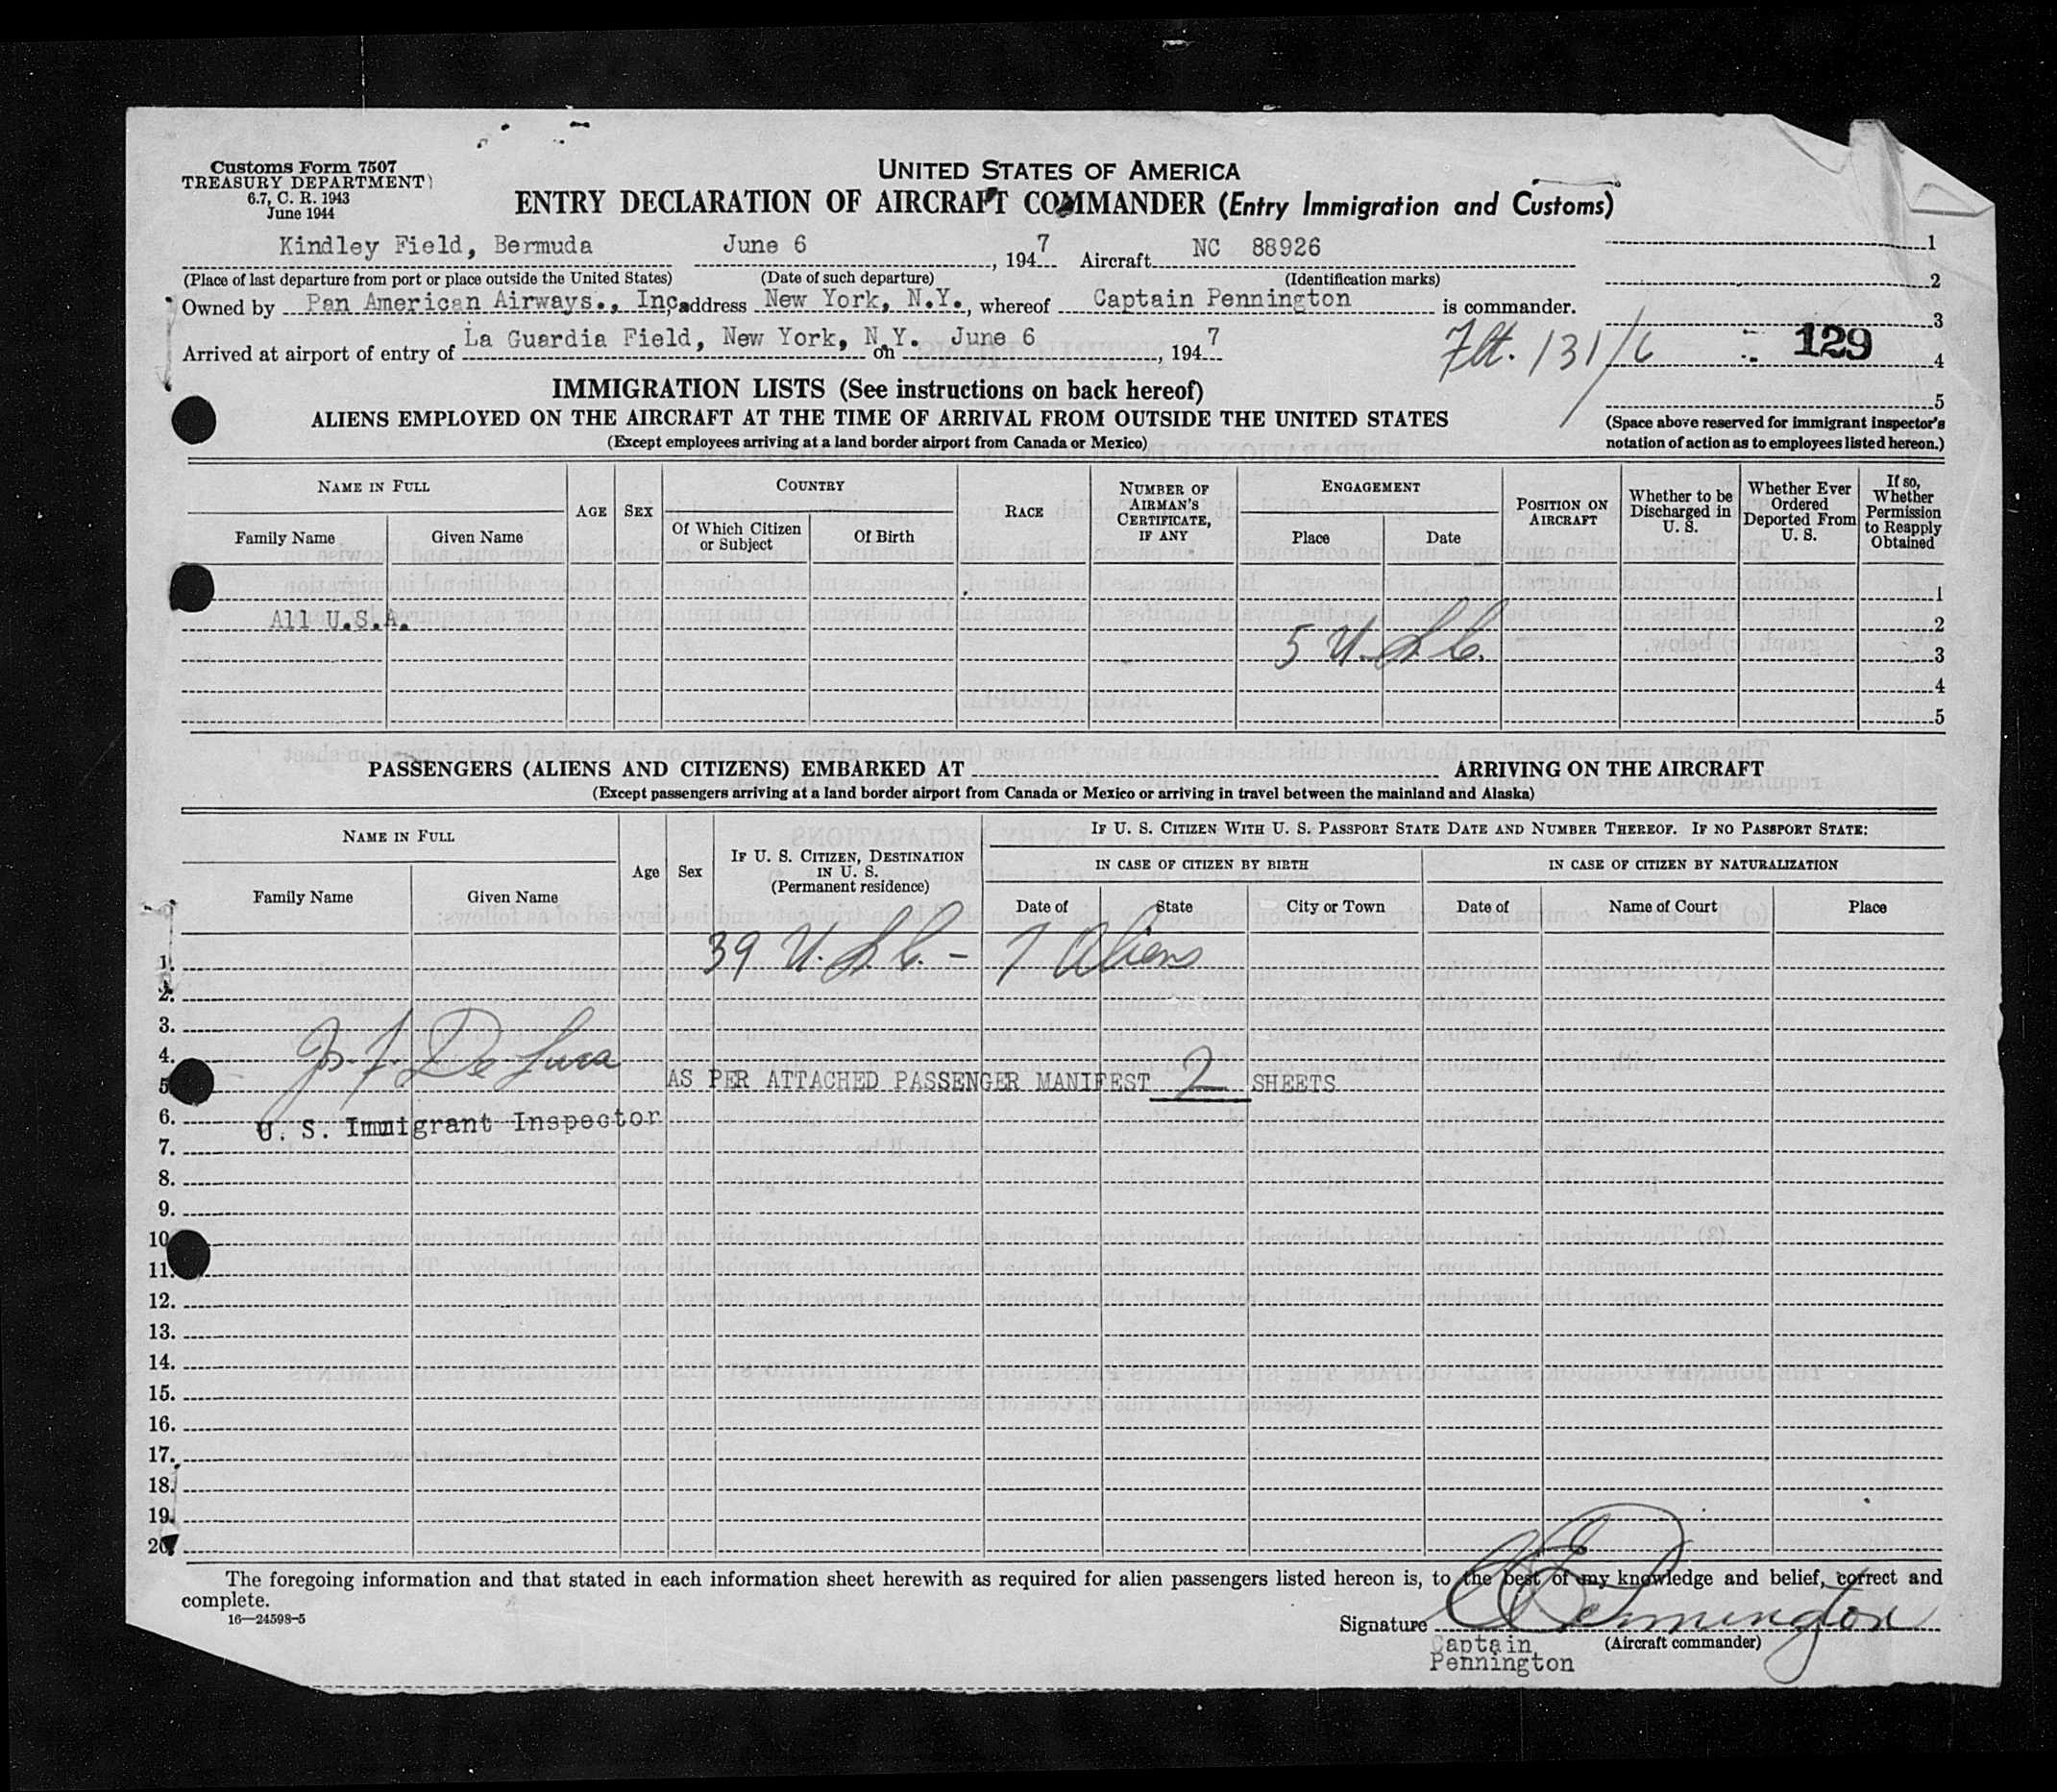 Customs Form 7507
TREASURY DEPARTMENT
6.7, C. R. 1943
June 1944
UNITED STATES OF AMERICA
ENTRY DECLARATION OF AIRCRAFT COMMANDER (Entry Immigration and Customs)
Kindley Field, Bermuda June 6, 1947 Aircraft NC 88926
(Place of last departure from port or place outside the United States) (Date of such departure) (Identification marks)
Owned by Pan American Airways., Inc, address New York, N.Y., whereof Captain Pennington is commander.
Arrived at airport of entry of La Guardia Field, New York, N.Y. on June 6, 1947
Flt. 131/6
129
1
2
3
4
5
(Space above reserved for immigrant inspector's
notation of action as to employees listed hereon.)
IMMIGRATION LISTS (See instructions on back hereof)
ALIENS EMPLOYED ON THE AIRCRAFT AT THE TIME OF ARRIVAL FROM OUTSIDE THE UNITED STATES
(Except employees arriving at a land border airport from Canada or Mexico)
NAME IN FULL
Family Name
Given Name
AGE
SEX
COUNTRY
Of Which Citizen
or Subject
Of Birth
RACE
NUMBER OF
AIRMAN'S
CERTIFICATE,
IF ANY
ENGAGEMENT
Place
Date
POSITION ON
AIRCRAFT
Whether to be
Discharged in
U. S.
Whether Ever
Ordered
Deported From
U. S.
If so,
Whether
Permission
to Reapply
Obtained
1
All U.S.A. 2
5 U.S.C. 3
4
5
PASSENGERS (ALIENS AND CITIZENS) EMBARKED AT ARRIVING ON THE AIRCRAFT
(Except passengers arriving at a land border airport from Canada or Mexico or arriving in travel between the mainland and Alaska)
NAME IN FULL
Family Name
Given Name
Age
Sex
IF U. S. CITIZEN, DESTINATION
IN U. S.
(Permanent residence)
IF U. S. CITIZEN WITH U. S. PASSPORT STATE DATE AND NUMBER THEREOF. IF NO PASSPORT STATE:
IN CASE OF CITIZEN BY BIRTH
IN CASE OF CITIZEN BY NATURALIZATION
Date of
State
City or Town
Date of
Name of Court
Place
1. 39 U.S.C. - 7 Aliens
2.
3.
4. De Luca
5. AS PER ATTACHED PASSENGER MANIFEST 2 SHEETS
6. U. S. Immigrant Inspector
7.
8.
9.
10
11.
12.
13.
14.
15.
16.
17.
18.
19.
20
The foregoing information and that stated in each information sheet herewith as required for alien passengers listed hereon is, to the best of my knowledge and belief, correct and
complete.
16—24598-5
Signature Pennington
(Aircraft commander)
Captain
Pennington